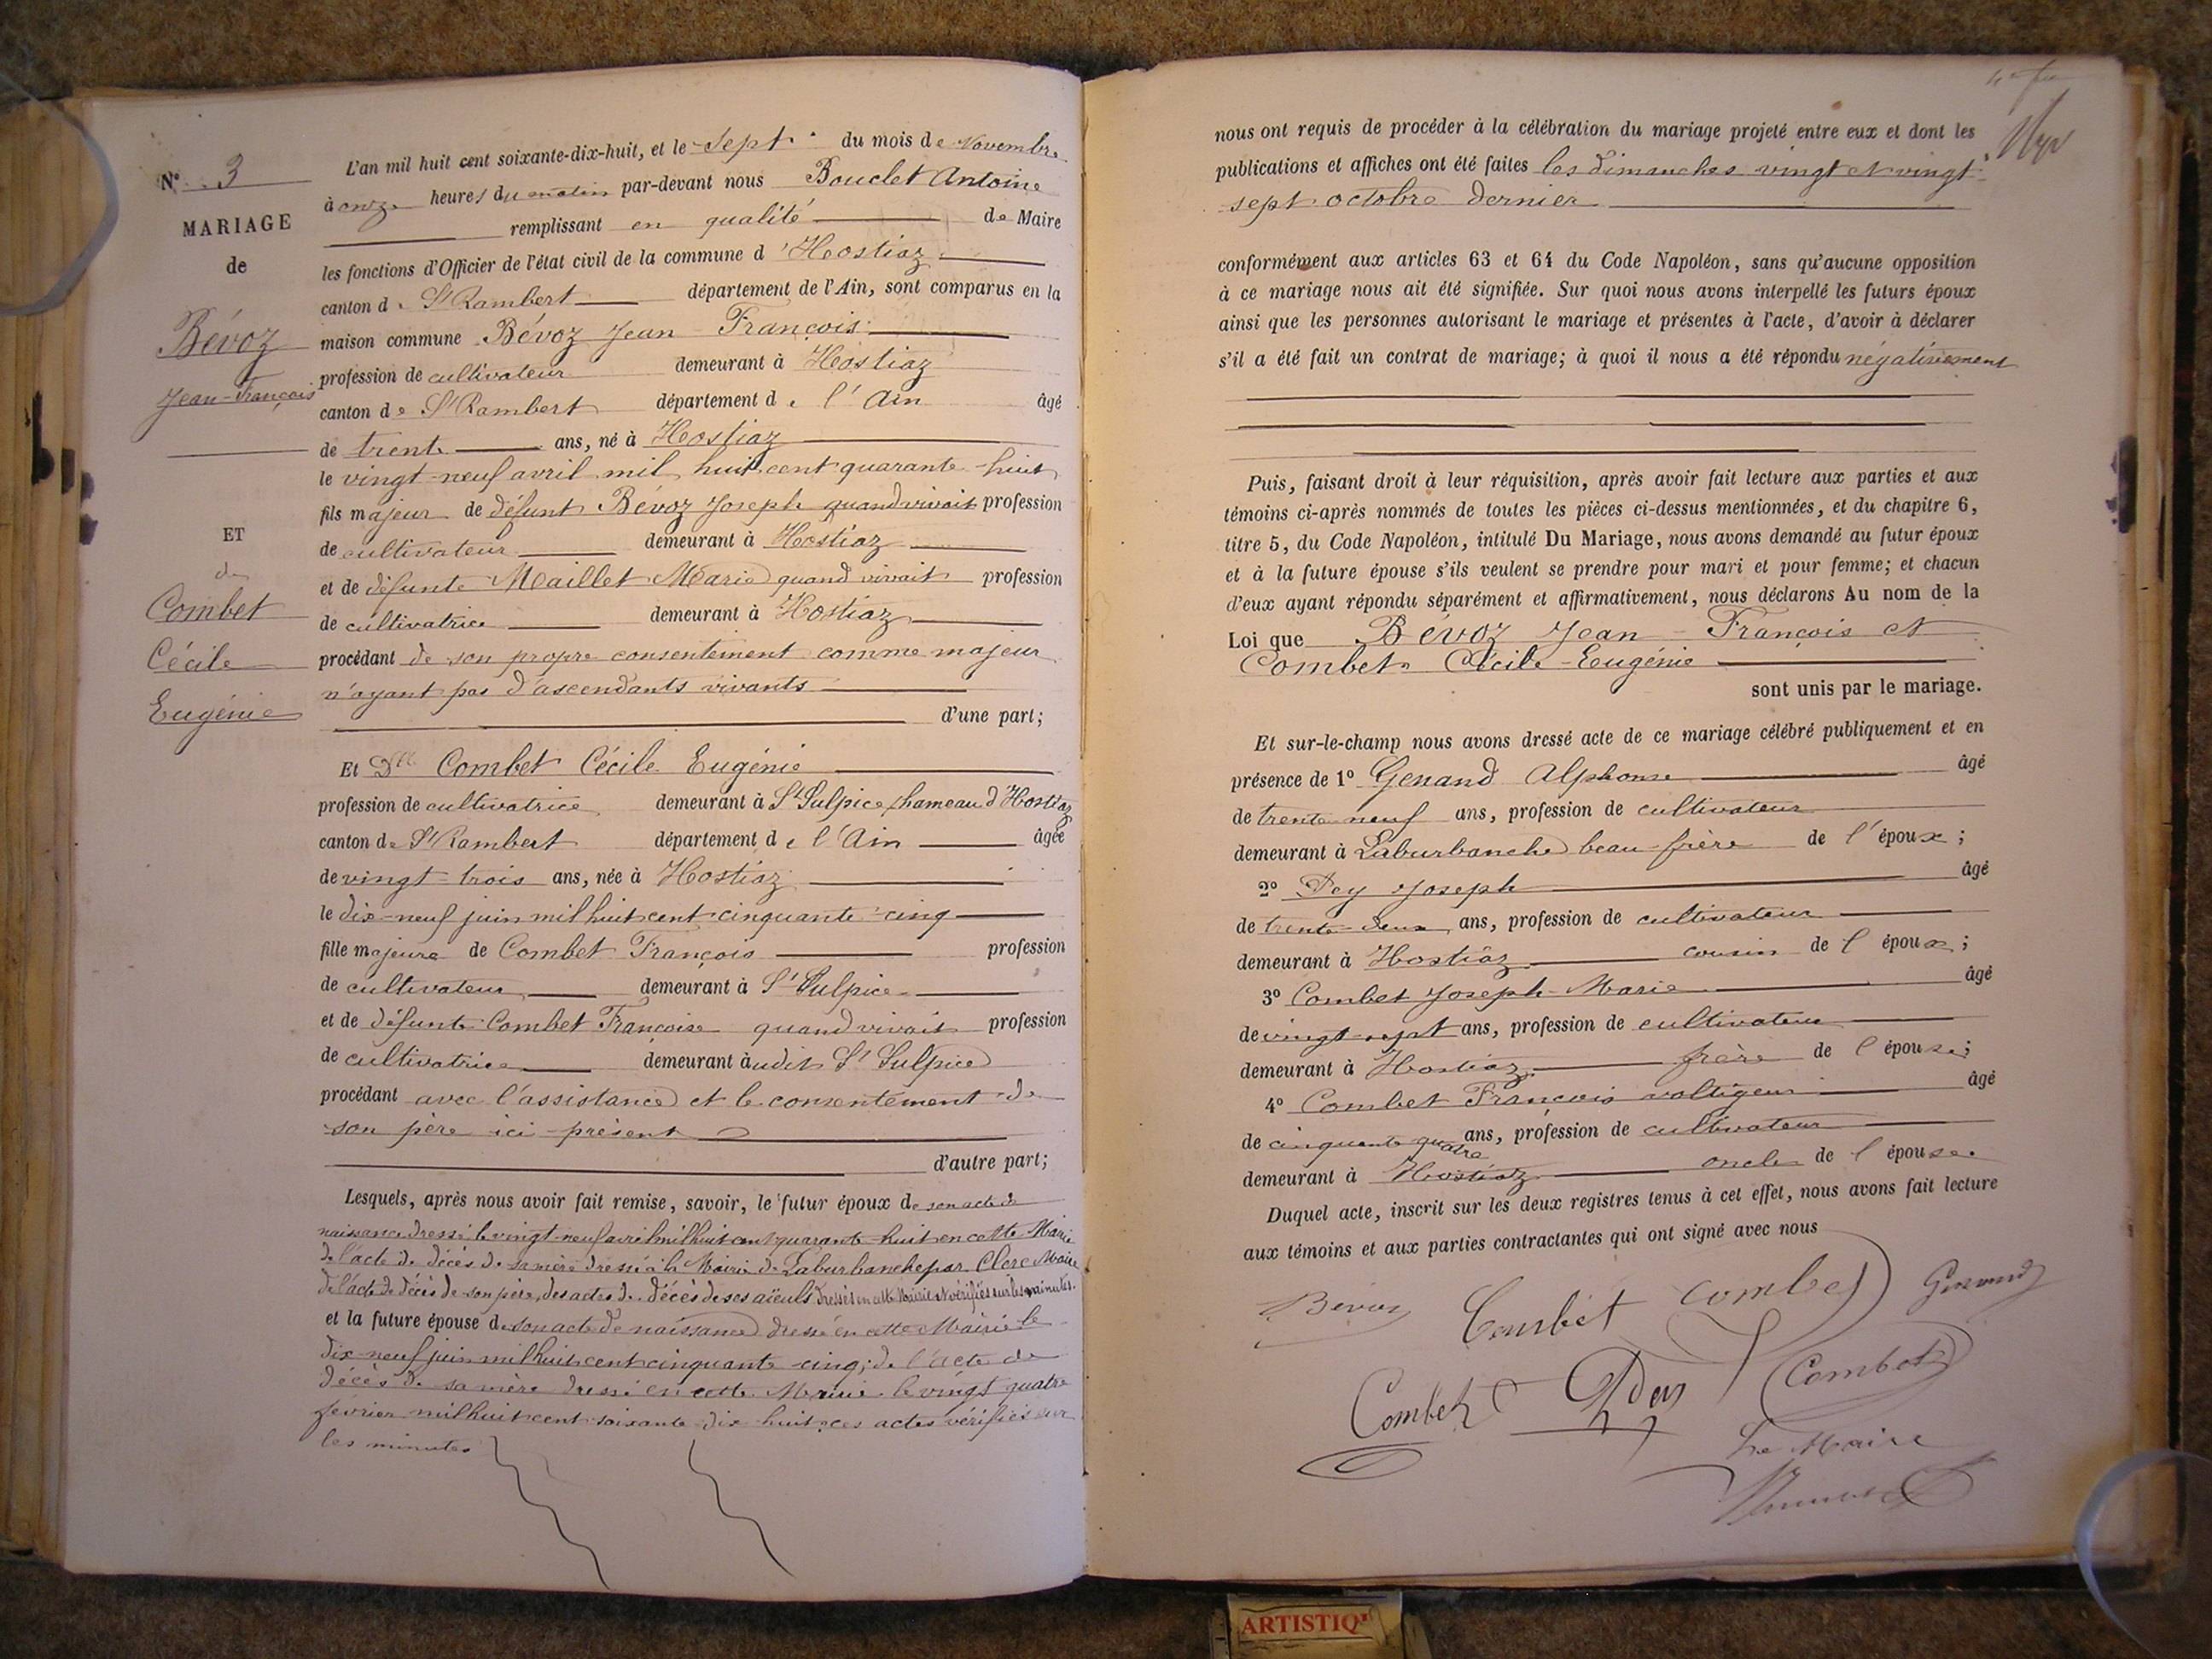 N° 3
MARIAGE
de
Bévoz
Jean-François
ET
de
Combet
Cécile
Eugénie
L'an mil huit cent soixante-dix-huit, et le Sept du mois de Novembre
à onze heures du matin par-devant nous Bouclet Antoine
remplissant en qualité de Maire
les fonctions d'Officier de l'état civil de la commune d'Hostiaz
canton de St Rambert département de l'Ain, sont comparus en la
maison commune Bévoz Jean-François
profession de cultivateur demeurant à Hostiaz
canton de St Rambert département de l'Ain âgé
de trente ans, né à Hostiaz
le vingt-neuf avril mil huit cent quarante-huit
fils majeur de défunt Bévoz Joseph quand vivait profession
de cultivateur demeurant à Hostiaz
et de défunte Maillet Marie quand vivait profession
de cultivatrice demeurant à Hostiaz
procédant de son propre consentement comme majeur
n'ayant pas d'ascendants vivants
d'une part;
Et Dlle Combet Cécile Eugénie
profession de cultivatrice demeurant à St Sulpice, hameau d'Hostiaz
canton de St Rambert département de l'Ain âgée
de vingt-trois ans, née à Hostiaz
le dix-neuf juin mil huit cent cinquante-cinq
fille majeure de Combet François profession
de cultivateur demeurant à St Sulpice
et de défunte Combet Françoise quand vivait profession
de cultivatrice demeurant audit St Sulpice
procédant avec l'assistance et le consentement de
son père ici présent
d'autre part;
Lesquels, après nous avoir fait remise, savoir, le futur époux de son acte de
naissance dressé le vingt-neuf avril mil huit cent quarante-huit en cette Mairie
de l'acte de décès de sa mère dressé à la Mairie de Laburbanche par Clerc Maire
de l'acte de décès de son père, des actes de décès de ses aïeuls dressés en cette Mairie et vérifiés sur les minutes.
et la future épouse de son acte de naissance dressé en cette Mairie le
dix-neuf juin mil huit cent cinquante-cinq; de l'acte de
décès de sa mère dressé en cette Mairie le vingt quatre
février mil huit cent soixante-dix-huit, ces actes vérifiés sur
les minutes
nous ont requis de procéder à la célébration du mariage projeté entre eux et dont les
publications et affiches ont été faites les dimanches vingt et vingt-
sept octobre dernier
conformément aux articles 63 et 64 du Code Napoléon, sans qu'aucune opposition
à ce mariage nous ait été signifiée. Sur quoi nous avons interpellé les futurs époux
ainsi que les personnes autorisant le mariage et présentes à l'acte, d'avoir à déclarer
s'il a été fait un contrat de mariage; à quoi il nous a été répondu négativement
Puis, faisant droit à leur réquisition, après avoir fait lecture aux parties et aux
témoins ci-après nommés de toutes les pièces ci-dessus mentionnées, et du chapitre 6,
titre 5, du Code Napoléon, intitulé Du Mariage, nous avons demandé au futur époux
et à la future épouse s'ils veulent se prendre pour mari et pour femme; et chacun
d'eux ayant répondu séparément et affirmativement, nous déclarons Au nom de la
Loi que Bévoz Jean-François et
Combet Cécile-Eugénie
sont unis par le mariage.
Et sur-le-champ nous avons dressé acte de ce mariage célébré publiquement et en
présence de 1° Genand Alphonse âgé
de trente-neuf ans, profession de cultivateur
demeurant à Laburbanche beau-frère de l'époux;
2° Dey Joseph âgé
de trente-deux ans, profession de cultivateur
demeurant à Hostiaz cousin de l'époux;
3° Combet Joseph-Marie âgé
de vingt-sept ans, profession de cultivateur
demeurant à Hostiaz frère de l'épouse;
4° Combet François voltigeur âgé
de cinquante quatre ans, profession de cultivateur
demeurant à Hostiaz oncle de l'épouse.
Duquel acte, inscrit sur les deux registres tenus à cet effet, nous avons fait lecture
aux témoins et aux parties contractantes qui ont signé avec nous
Bévoz Combet Combet Genand
Combet Dey Combet
Le Maire
ARTISTIQ